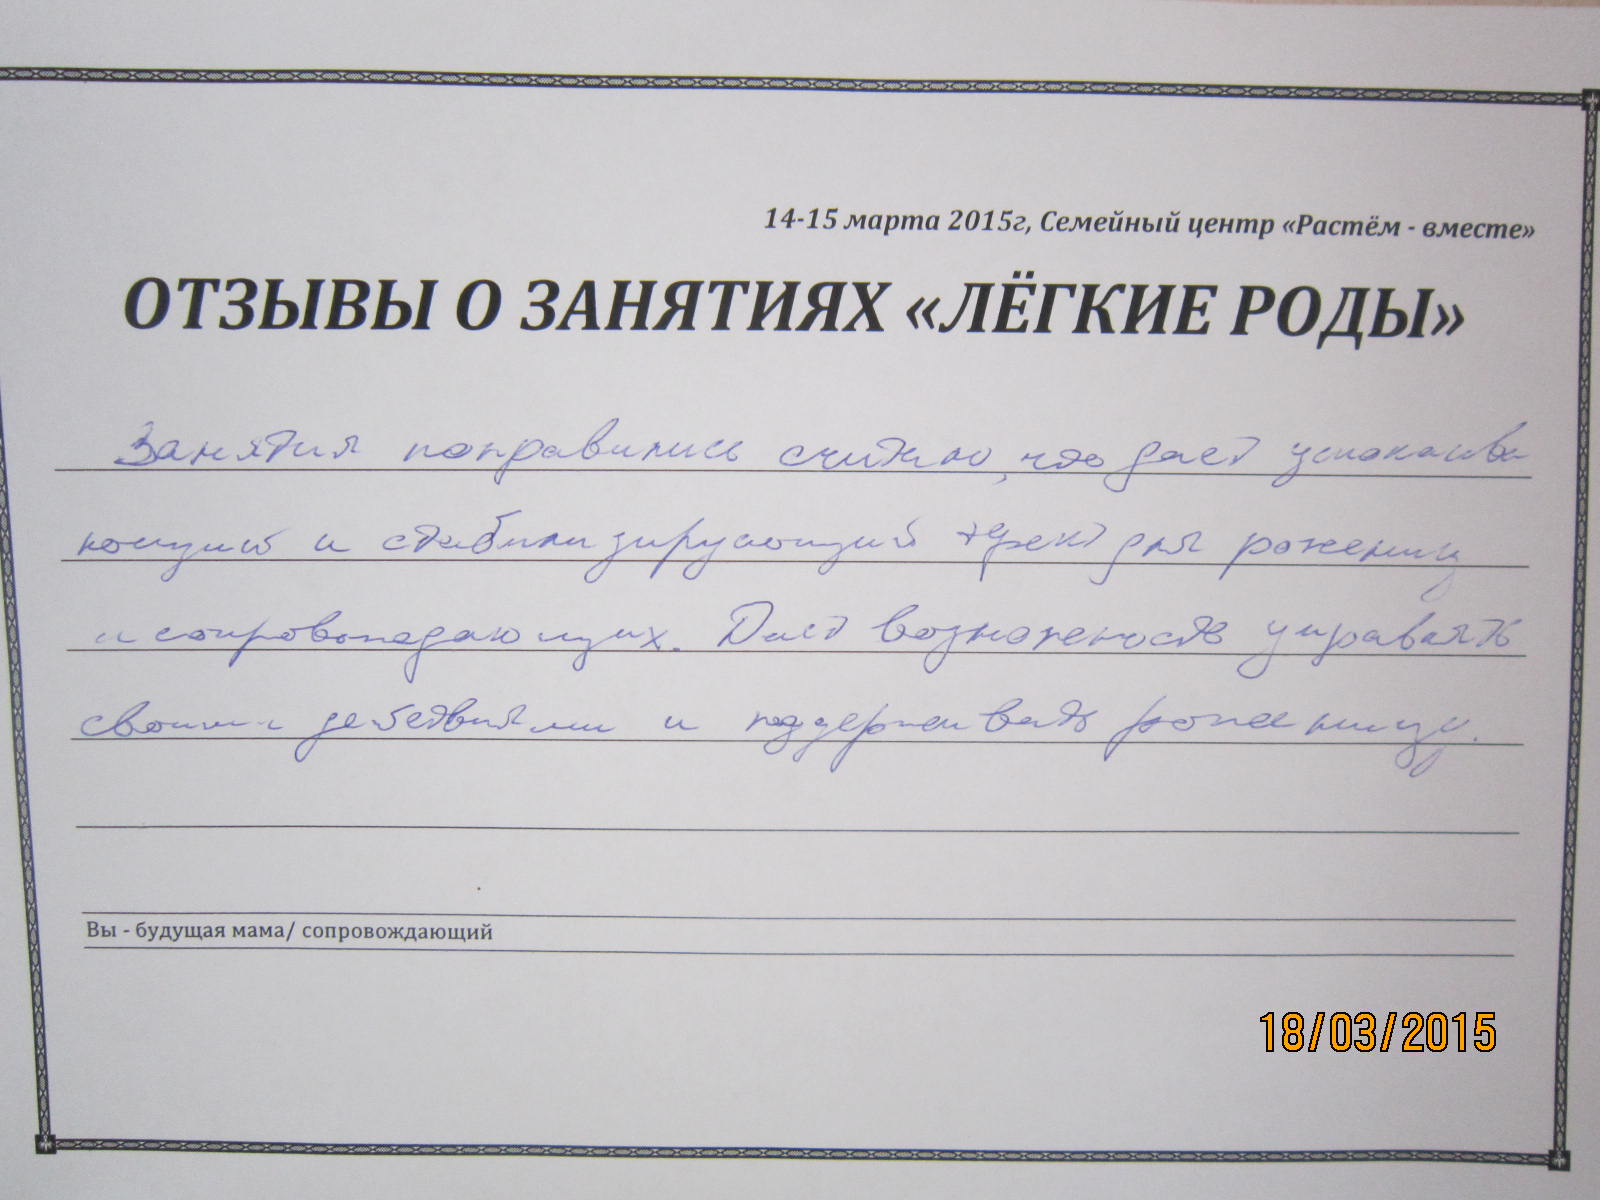 14-15 марта 2015г, Семейный центр «Растём - вместе»
ОТЗЫВЫ О ЗАНЯТИЯХ «ЛЁГКИЕ РОДЫ»
Занятия понравились считаю, что дает успокаива
ющий и стабилизирующий эффект для рожениц
и сопровождающих. Дает возможность управлять
своими действиями и поддерживать роженицу.
Вы - будущая мама/ сопровождающий
18/03/2015